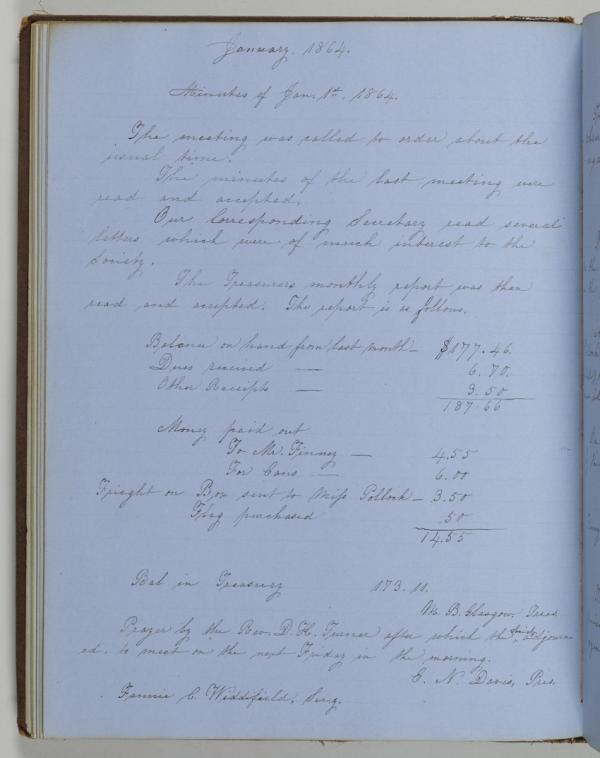 January, 1864.
Minutes of Jan. 1st. 1864.
The meeting was called to order about the
usual time.
The minutes of the last meeting were
read and accepted.
Our Corresponding Secretary read several
letters which were of much interest to the
Society.
The Treasurers monthly report was then
read and accepted. The report is as follows.
Balance on hand from last month - $177.46.
Dues received — 6.70.
Other Receipts — 3.50
187.66
Money paid out
To Mr. Finney — 4.55
For Cans — 6.00
Frieght on Box sent to Miss Pollock - 3.50
Flag purchased .50
14.55
Bal in Treasury 173.11.
M. B. Glasgow, Treas
Prayer by the Rev. D. K. Turner after which the adjourn
ed. to meet on the next Friday in the morning.
C. N. Davis, Pres.
Fannie C. Widdifield,